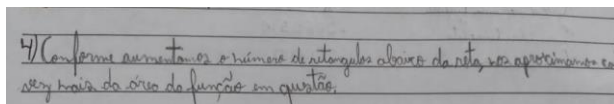 4) Conforme aumentamos o número de retangulos abaixo da reta, nos aproximamos ca
vez mais da área da função em questão.